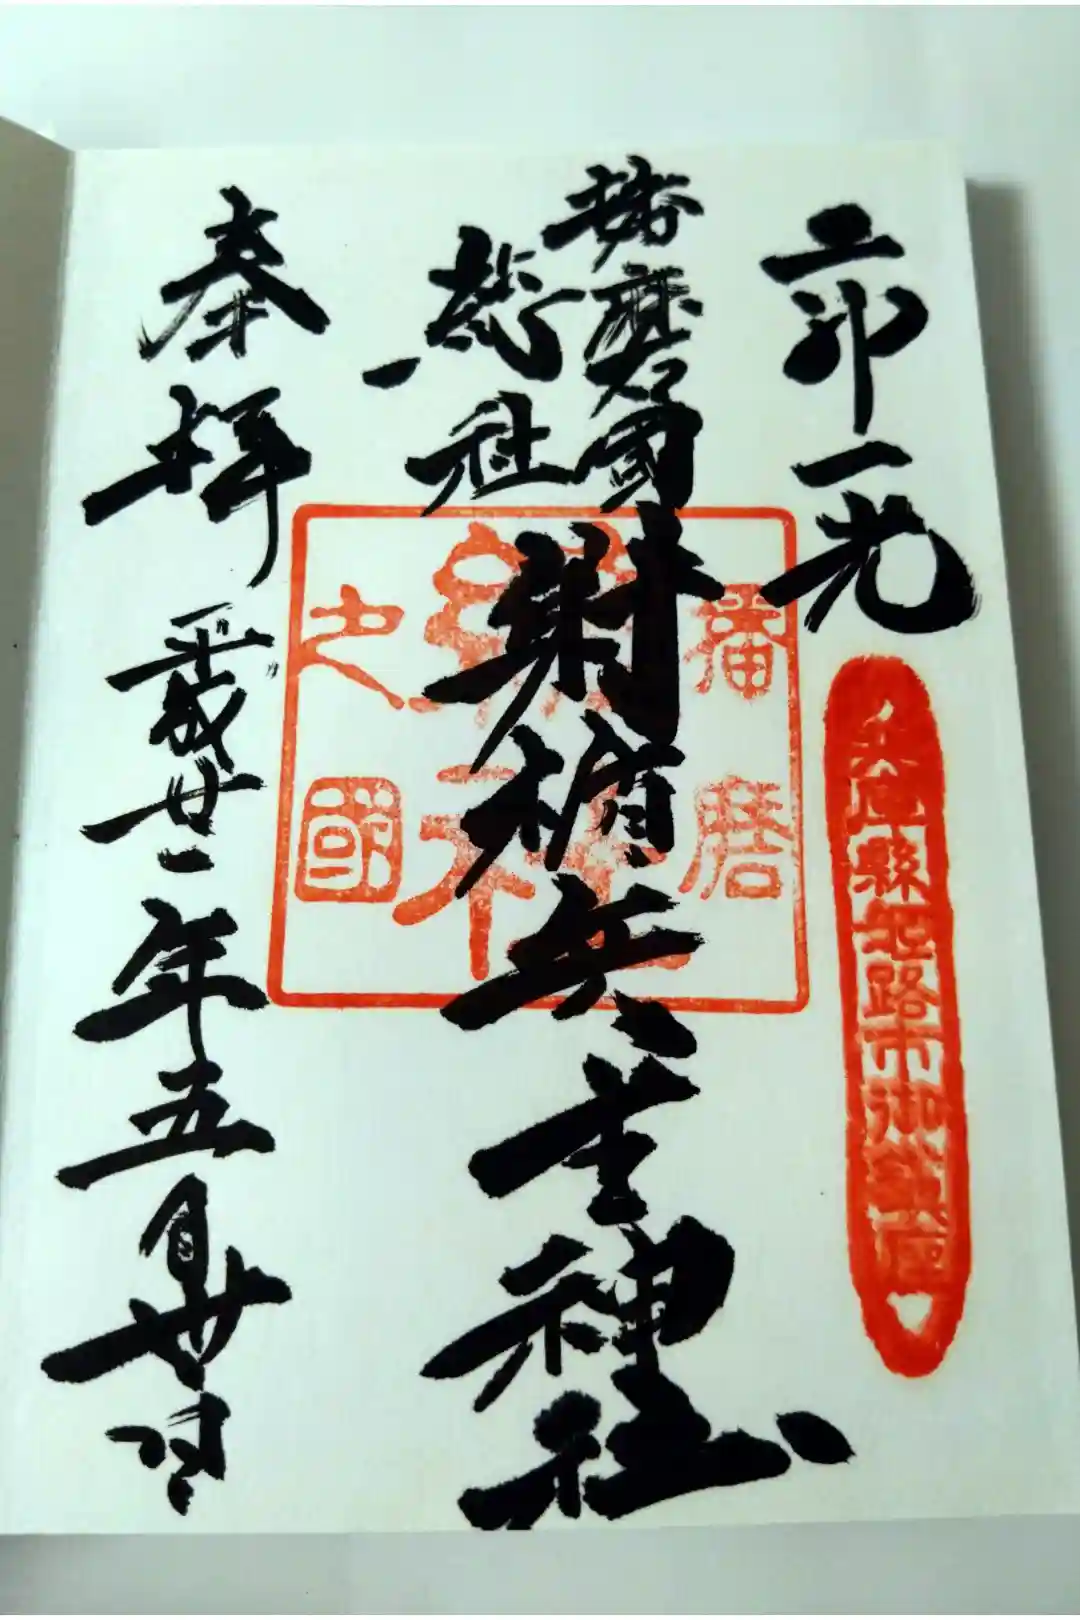 播磨國
総社
射楯兵主神社
奉拝
平成廿一年五月廿日
播磨
総社
之國
兵庫縣姫路市御鎮座